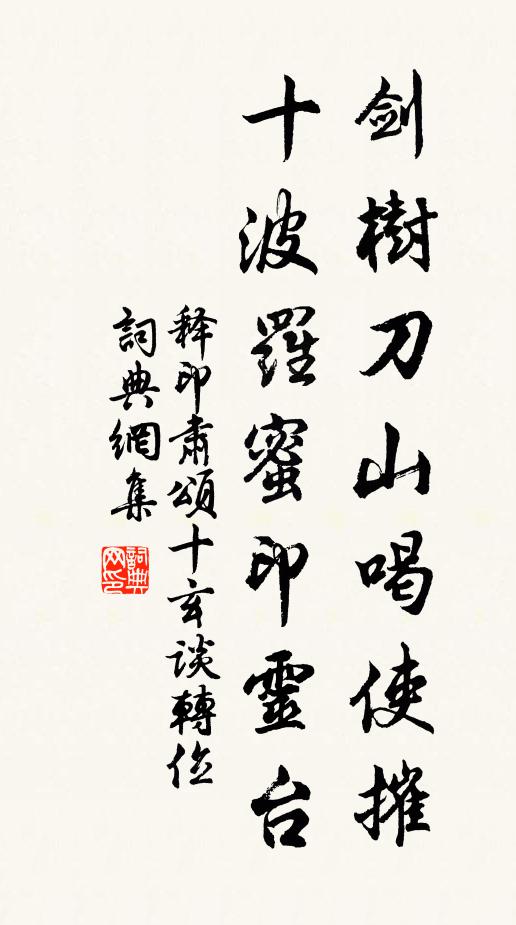 劍樹刀山喝使摧
十波羅蜜印靈台
释印肅頌十玄談轉位
詞典網集
詞典
网印